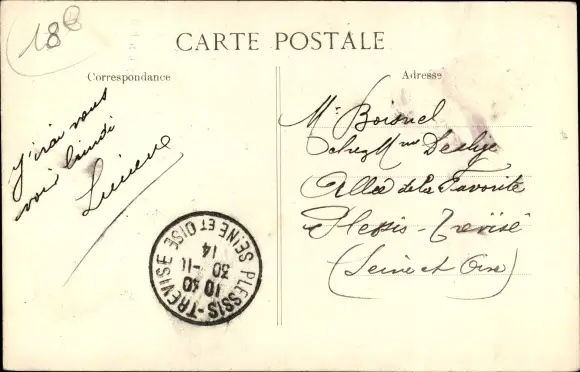 188
CARTE POSTALE
Correspondance
Adresse
J'irai vous
voir lundi
Lucienne
Mr Boisnel
chez Mme Deslije
Allée de la Favorite
Plessis-Trévise
(Seine et Oise)
PLESSIS-TREVISE
SEINE ET OISE
10 40
30 -11
14